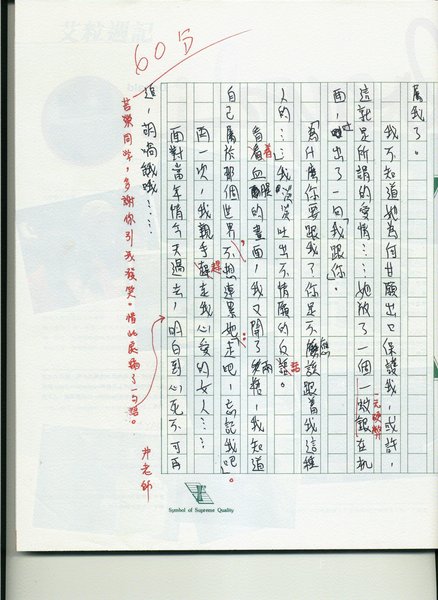 屬我了。
我不知道她為何甘願出口保護我,或許,
這就是所謂的愛情……她放了一個一
在机
一元硬幣
面,吐出了一句「我跟你」。
「為什麼你要跟我?你是不應該跟著我這種
人的……」我哭哭吐出不情願的反話。
看著血腥的畫面,我又開了兩槍,我知道
自己屬於那個世界不想連累她「走吧,忘記我吧」。
再一次,我親手趕走我心愛的女人……
面對當年情今天過去,明白到心死不可再
追,胡嗚哦哦!……
60分
同學,多謝你引我發笑。惜此處
了一句話。
尹老師
Symbol of Supreme Quality